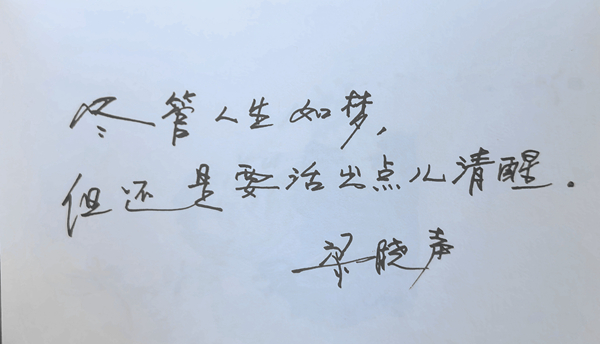 尽管人生如梦,
但还是要活出点儿清醒.
梁晓声